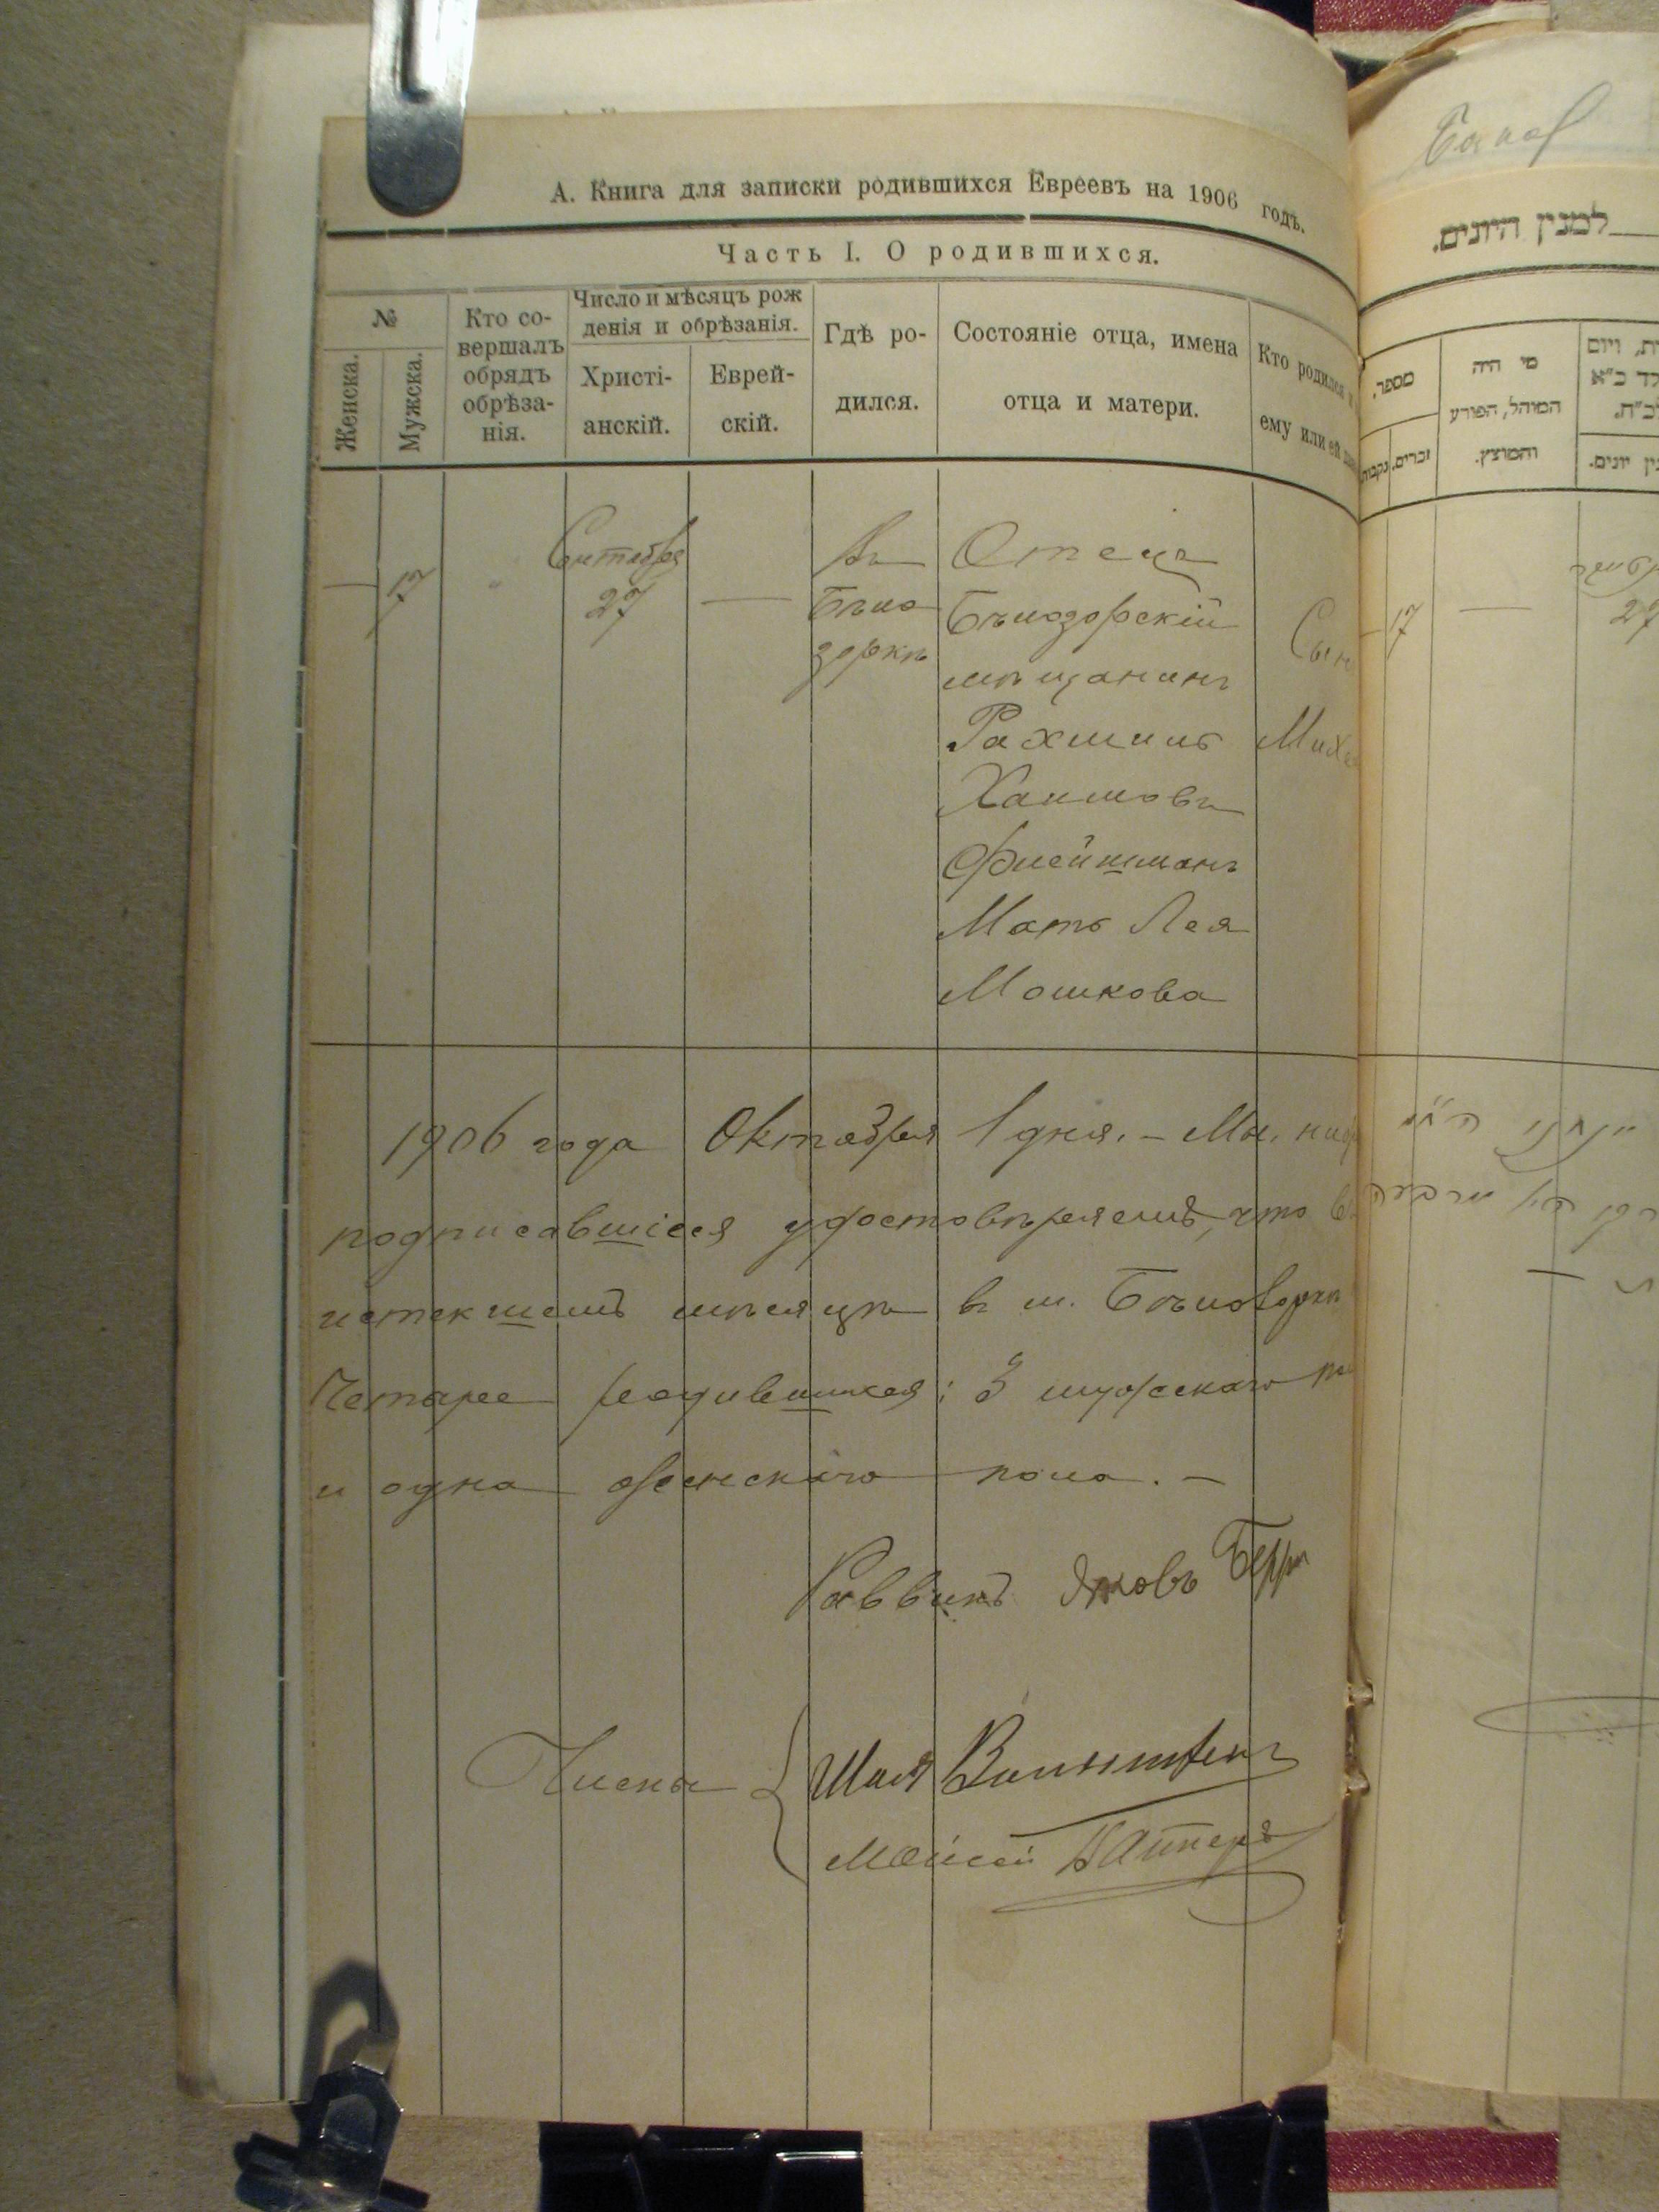 А. Книга для записки родившихся Евреевъ на 1906 годъ.
Часть I. О родившихся.
№
Женска.
Мужска.
Кто со-
вершалъ
обрядъ
обрѣза-
нія.
Число и мѣсяцъ рож
денія и обрѣзанія.
Христі-
анскій.
Еврей-
скій.
Гдѣ ро-
дился.
Состояніе отца, имена
отца и матери.
Кто родился и
ему или ей
—
17
Сентября
27
—
Въ
Бѣло
зоркѣ
Отецъ
Бѣлозорскій
мѣщанинъ
Рахмиль
Хаимовъ
Флейшманъ
Мать Лея
Мошкова
Сын
Михе
1906 года Октября 1 дня. – Мы, ниже
подписавшіеся удостовѣряемъ, что въ
истекшемъ мѣсяцѣ въ м. Бѣлозоркѣ
Четыре родившихся: 3 мужскаго по
и одна женскаго пола. –
Раввинъ Яковъ
Члены
Шая
Моисей
למנין היונים.
מספר,
נקבות.
זכרים.
מי היה
המוהל, הפורע
והמוצץ.
ת, ויום
לד כ"א
כ"ת.
ין יונים.
17
—
27